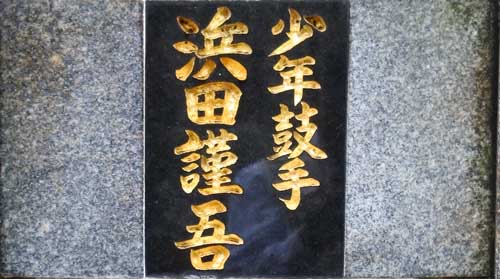 少年鼓手
浜田謹吾